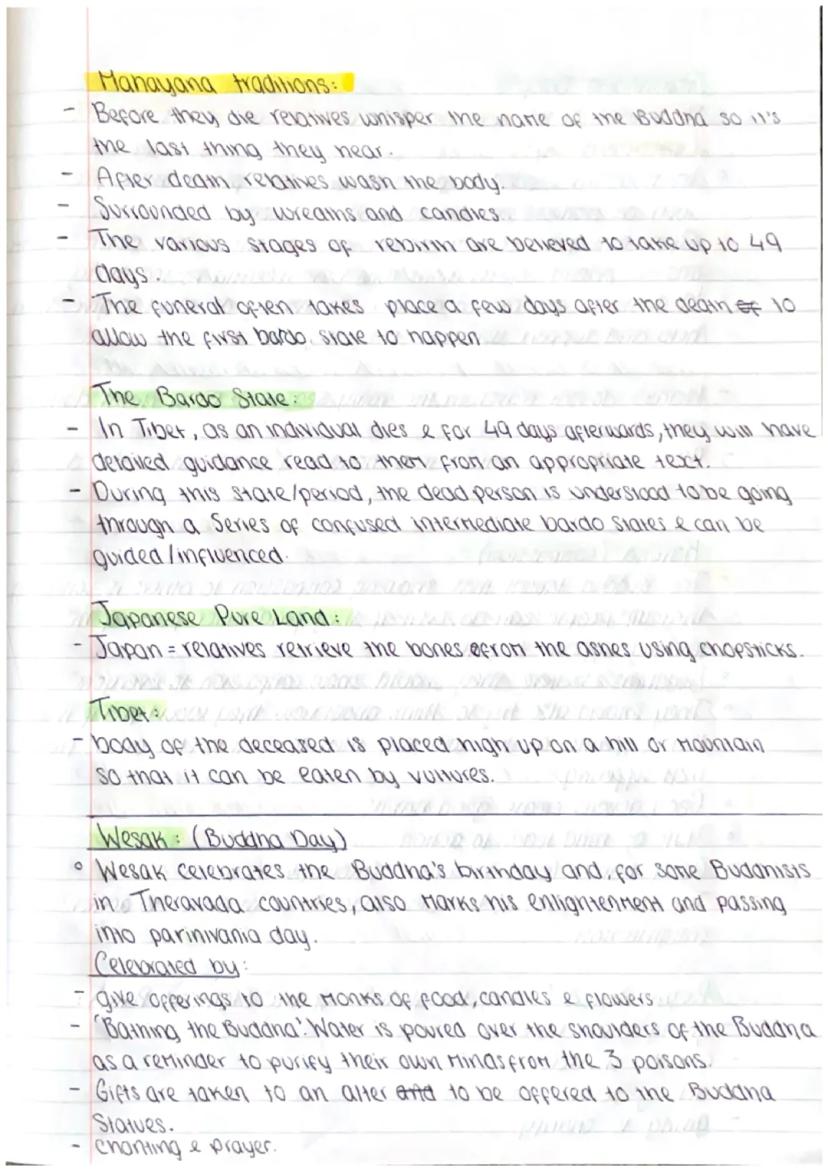 Mahayana traditions:
- Before they die relatives whisper the name of the Buddha so it's
the last thing they hear.
- After death relatives wash the body.
- Surrounded by wreaths and candles
- The various stages of rebirth are believed to take up to 49
days.
- The funeral often takes place a few days after the death of to
allow the first bardo state to happen
The Bardo State:
- In Tibet, as an individual dies & for 49 days afterwards, they will have
detailed guidance read to them from an appropriate text.
- During this state/period, the dead person is understood to be going
through a series of confused intermediate bardo states & can be
guided/influenced.
Japanese Pure Land:
- Japan = relatives retrieve the bones from the ashes using chopsticks.
Tibet:
- body of the deceased is placed high up on a hill or mountain
so that it can be eaten by vultures.
Wesak: (Buddha Day)
° Wesak celebrates the Buddha's birthday and, for some Buddhists
in Theravada countries, also marks his enlightenment and passing
into parinivania day.
Celebrated by:
- give offerings to the monks of food, candles & flowers
- 'Bathing the Buddha'. Water is poured over the shoulders of the Buddha
as a reminder to purify their own minds from the 3 poisons.
- Gifts are taken to an alter and to be offered to the Buddha
Statues.
- chanting & prayer.